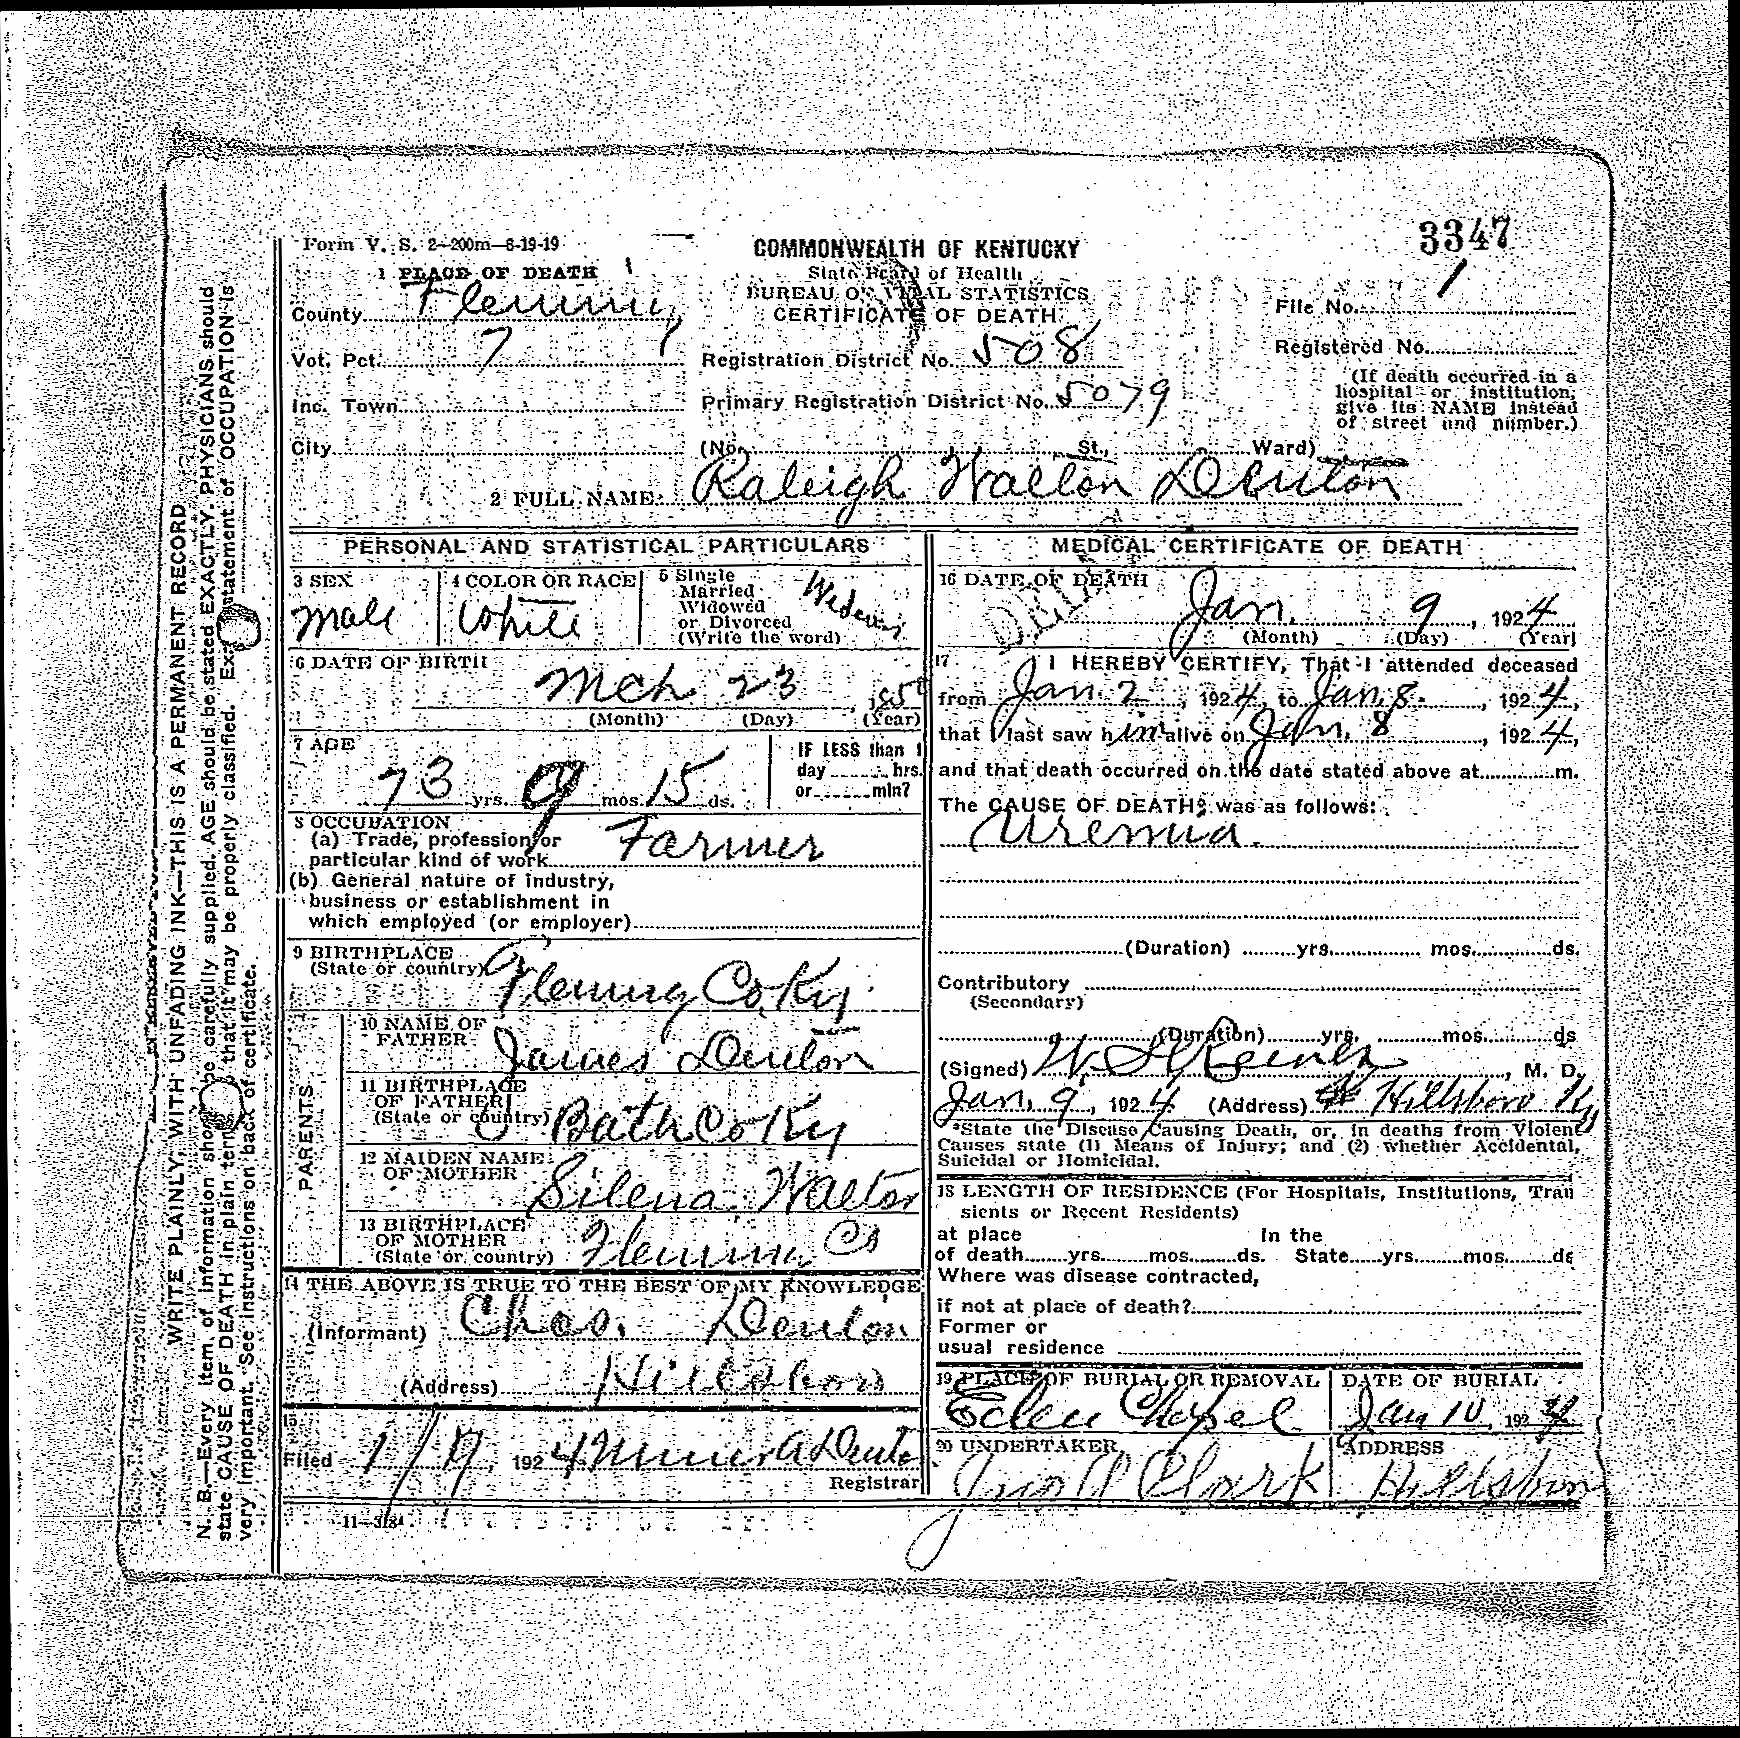 3347
Form V. S. 2-200m-6-19-19
COMMONWEALTH OF KENTUCKY
State Board of Health
BUREAU OF VITAL STATISTICS
CERTIFICATE OF DEATH
1 PLACE OF DEATH
County Fleming
Vot. Pct. 7
Inc. Town
City
Registration District No. 508
Primary Registration District No. 5079
(No. St., Ward)
File No. 1
Registered No.
(If death occurred in a
hospital or institution,
give its NAME instead
of street and number.)
2 FULL NAME Raleigh Walton Denton
PERSONAL AND STATISTICAL PARTICULARS
3 SEX
Male
4 COLOR OR RACE
White
5 Single
Married
Widowed
or Divorced
(Write the word)
6 DATE OF BIRTH
Mch 23, 1850
(Month) (Day) (Year)
7 AGE
73 yrs. 9 mos. 15 ds.
IF LESS than 1
day hrs.
or min?
8 OCCUPATION
(a) Trade, profession or
particular kind of work Farmer
(b) General nature of industry,
business or establishment in
which employed (or employer)
9 BIRTHPLACE
(State or country) Fleming Co. Ky
PARENTS
10 NAME OF
FATHER James Denton
11 BIRTHPLACE
OF FATHER
(State or country) Bath Co Ky
12 MAIDEN NAME
OF MOTHER Silena Walton
13 BIRTHPLACE
OF MOTHER
(State or country) Fleming Co
14 THE ABOVE IS TRUE TO THE BEST OF MY KNOWLEDGE
(Informant) Chas. Denton
(Address) Hillsboro
15
Filed 1/ 1924
Registrar
11-3184
MEDICAL CERTIFICATE OF DEATH
16 DATE OF DEATH
Jan. 9, 1924
(Month) (Day) (Year)
17 I HEREBY CERTIFY, That I attended deceased
from Jan. 2, 1924, to Jan. 8, 1924,
that I last saw him alive on Jan. 8, 1924,
and that death occurred on the date stated above at m.
The CAUSE OF DEATH* was as follows:
Uremia.
(Duration) yrs. mos. ds.
Contributory
(Secondary)
(Duration) yrs. mos. ds
(Signed) W. S. , M. D.
Jan. 9, 1924 (Address) Hillsboro Ky
*State the Disease Causing Death, or, in deaths from Violent
Causes state (1) Means of Injury; and (2) whether Accidental,
Suicidal or Homicidal.
18 LENGTH OF RESIDENCE (For Hospitals, Institutions, Tran
sients or Recent Residents)
at place In the
of death yrs. mos. ds. State yrs. mos. ds
Where was disease contracted,
if not at place of death?
Former or
usual residence
19 PLACE OF BURIAL OR REMOVAL
Eden Chapel
DATE OF BURIAL
Jan 10, 1924
20 UNDERTAKER
Clark
ADDRESS
Hillsboro
WRITE PLAINLY, WITH UNFADING INK—THIS IS A PERMANENT RECORD
N. B.—Every item of information should be carefully supplied. AGE should be stated EXACTLY. PHYSICIANS should
state CAUSE OF DEATH in plain terms, so that it may be properly classified. Exact statement of OCCUPATION is
very important. See instructions on back of certificate.